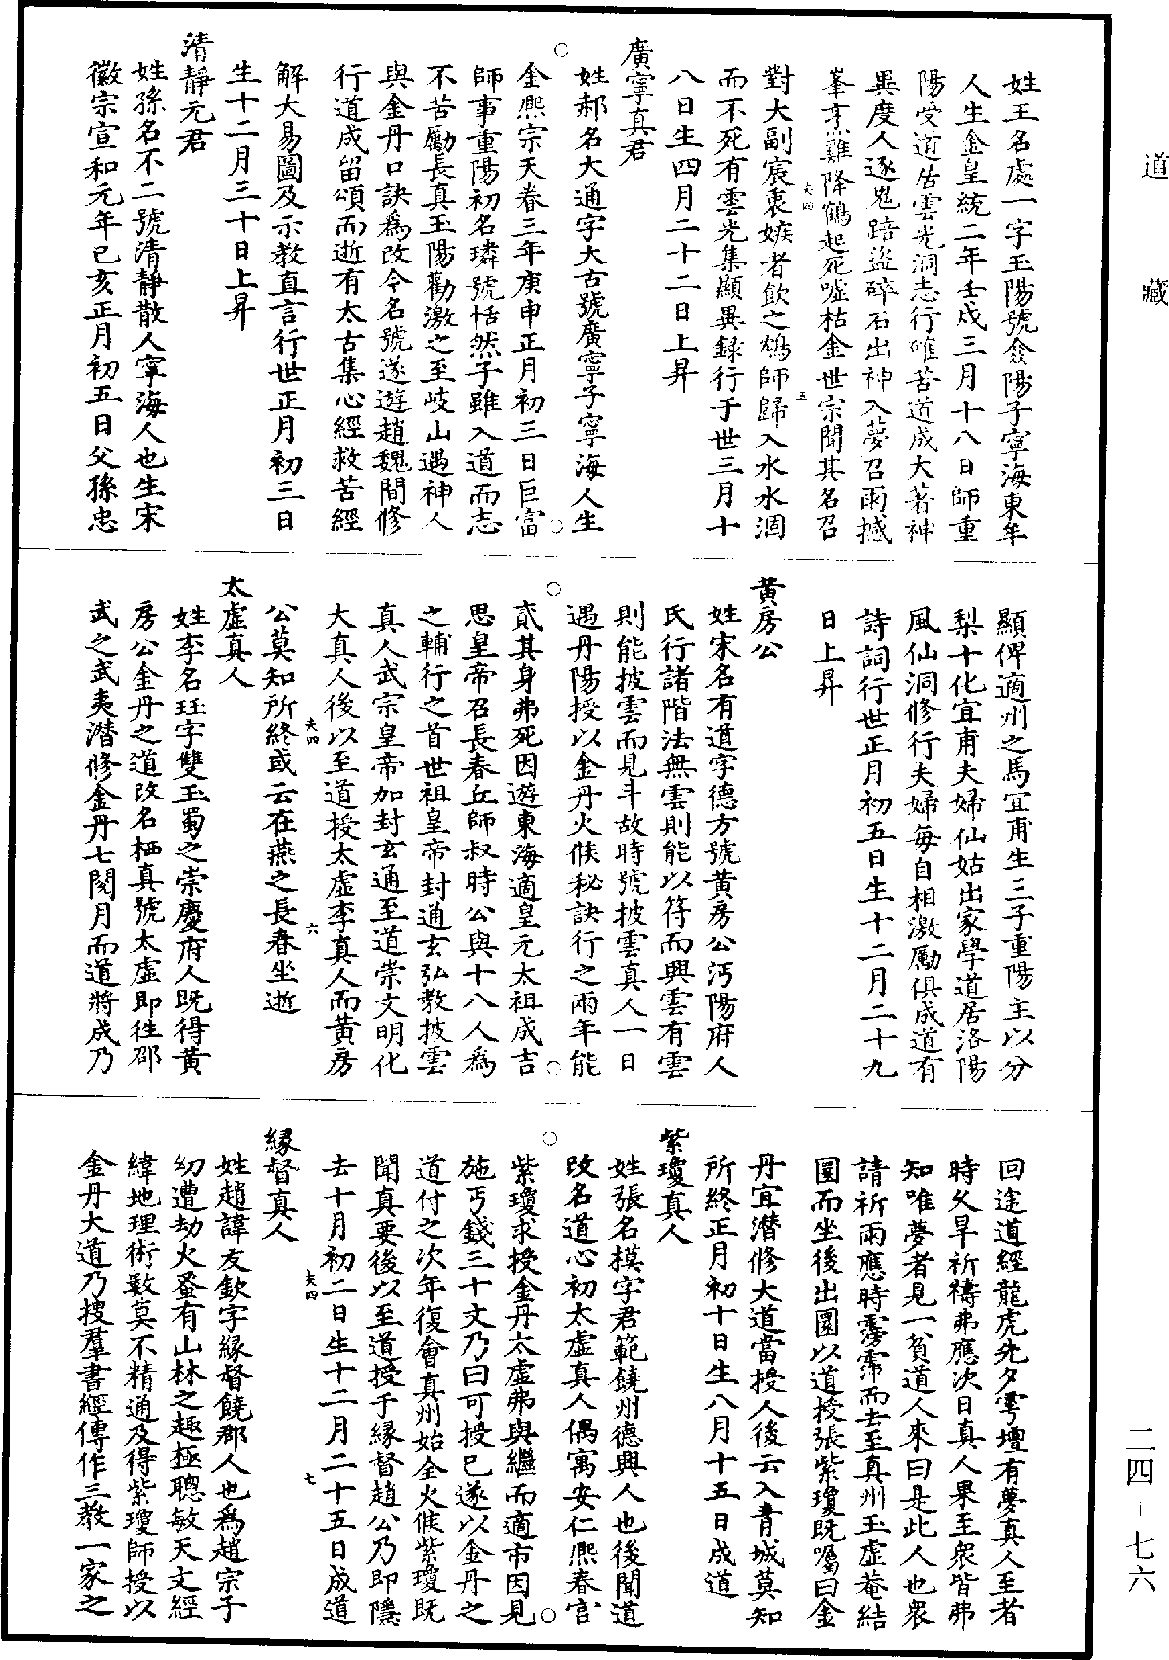 道藏
姓王名處一字玉陽號傘陽子寧海東牟
人生金皇統二年壬戌三月十八日師重
陽受道居雲光洞志行確苦道成大著神
異度人逐鬼踣盜碎石出神入夢召雨撼
峯烹雞降鶴起死噓枯金世宗聞其名召
夫四 五
對大副宸衷嫉者飲之鴆師歸入水水涸
而不死有雲光集顯異録行于世三月十
八日生四月二十二日上昇
廣寧真君
姓郝名大通字大古號廣寧子寧海人生
金熙宗天眷三年庚申正月初三日巨富
師事重陽初名璘號恬然子雖入道而志
不苦勵長真玉陽勸激之至岐山遇神人
與金丹口訣爲改今名號遂遊趙魏間修
行道成留頌而逝有太古集心經救苦經
解大易圖及示教直言行世正月初三日
生十二月三十日上昇
清靜元君
姓孫名不二號清靜散人寧海人也生宋
徽宗宣和元年己亥正月初五日父孫忠
顯俾適州之馬宜甫生三子重陽主以分
梨十化宜甫夫婦仙姑出家學道居洛陽
風仙洞修行夫婦每自相激勵俱成道有
詩詞行世正月初五日生十二月二十九
日上昇
黃房公
姓宋名有道字德方號黃房公沔陽府人
氏行諸階法無雲則能以符而興雲有雲
則能披雲而見斗故時號披雲真人一日
遇丹陽授以金丹火候秘訣行之兩年能
貳其身弗死因遊東海適皇元太祖成吉
思皇帝召長春丘師叔時公與十八人爲
之輔行之首世祖皇帝封通玄弘教披雲
真人武宗皇帝加封玄通至道崇文明化
大真人後以至道授太虛李真人而黃房
夫四 六
公莫知所終或云在燕之長春坐逝
太虛真人
姓李名珏字雙玉蜀之崇慶府人既得黃
房公金丹之道改名栖真號太虛即往邵
武之武夷潛修金丹七閱月而道將成乃
回途道經龍虎先夕雩壇有夢真人至者
時久旱祈禱弗應次日真人果至衆皆弗
知唯夢者見一貧道人來曰是此人也衆
請祈雨應時霶霈而去至真州玉虛菴結
圜而坐後出圜以道授張紫瓊既囑曰金
丹宜潛修大道當授人後云入青城莫知
所終正月初十日生八月十五日成道
紫瓊真人
姓張名模字君範饒州德興人也後聞道
改名道心初太虛真人偶寓安仁熙春宮
紫瓊求授金丹太虛弗與繼而適市因見
施丐錢三十文乃曰可授已遂以金丹之
道付之次年復會真州始全火候紫瓊既
聞真要後以至道授于緣督趙公乃即隱
去十月初二日生十二月二十五日成道
夫四 七
緣督真人
姓趙諱友欽字緣督饒郡人也爲趙宗子
幼遭劫火蚤有山林之趣極聰敏天文經
緯地理術數莫不精通及得紫瓊師授以
金丹大道乃搜羣書經傳作三教一家之
二四-七六